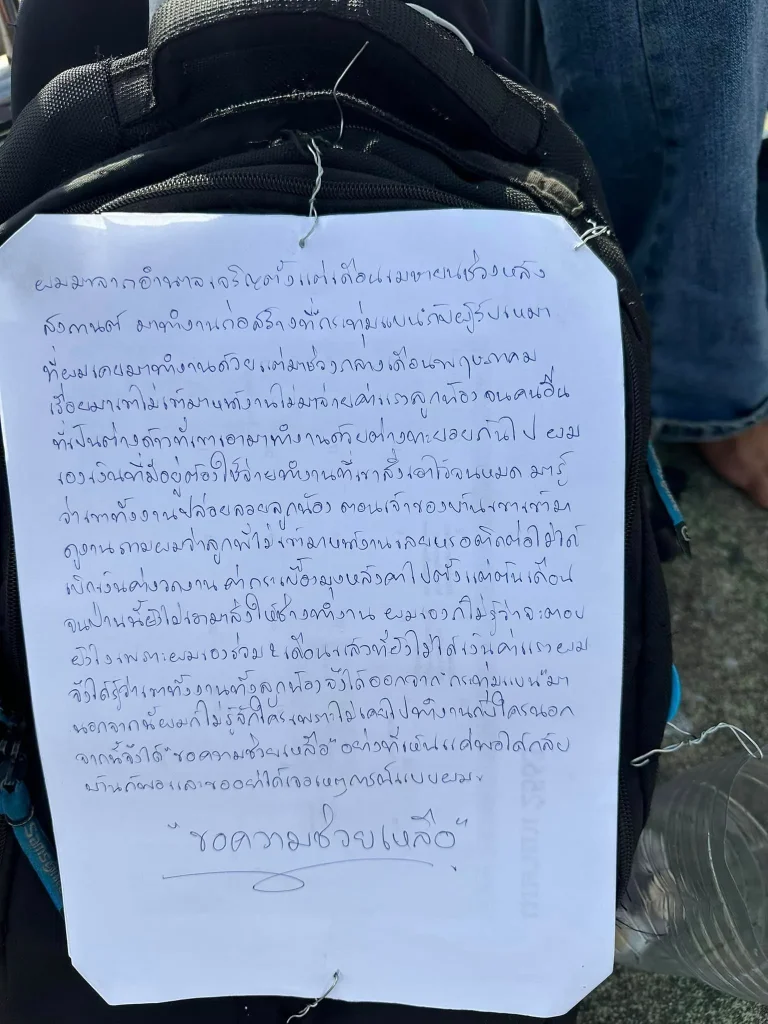 ผมมาจากอำนาจเจริญตั้งแต่เดือนเมษายนช่วงหลัง
สงกรานต์ มาทำงานก่อสร้างที่"กระทุ่มแบน"กับผู้รับเหมา
ที่ผมเคยมาทำงานด้วยแต่มาช่วงกลางเดือนพฤษภาคม
เรื่อยมาเขาไม่เข้ามาหน้างานไม่มาจ่ายค่าแรงลูกน้อง จนคนอื่น
ที่เป็นต่างด้าวที่เขาเอามาทำงานด้วยต่างทะยอยกันไป ผม
เองเงินที่มีอยู่ต้องใช้จ่ายทำงานที่เขาสั่งเอาไว้จนหมด มารู้
ว่าเขาทิ้งงานปล่อยลอยลูกน้อง ตอนเจ้าของบ้านเขาเข้ามา
ดูงาน ถามผมว่าลูกพี่ไม่เข้ามาหน้างานเลยหรอติดต่อไม่ได้
เบิกเงินค่างวดงาน ค่ากระเบื้องมุงหลังคาไปตั้งแต่ต้นเดือน
จนป่านนี้ยังไม่เอามาส่งให้ช่างทำงาน ผมเองก็ไม่รู้ว่าจะตอบ
ยังไงเพราะผมเองร่วม 2 เดือนแล้วที่ยังไม่ได้เงินค่าแรง ผม
จึงได้รู้ว่าเขาทิ้งงานทิ้งลูกน้อง จึงได้ออกจาก"กระทุ่มแบน"มา
นอกจากนี้ผมก็ไม่รู้จักใคร เพราะไม่เคยไปทำงานกับใครนอก
จากนี้จึงได้"ขอความช่วยเหลือ"อย่างที่เห็นแค่พอได้กลับ
บ้านก็พอและขออย่าได้เจอเหตุการณ์แบบผม
"ขอความช่วยเหลือ"